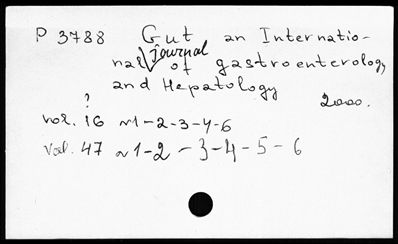 P 3788 Gut an Internatio-
nal Journal of gastroenterology
and Hepatology
? 2000.
vol. 16 N 1-2-3-4-6
Vol. 47 N 1-2-3-4-5-6